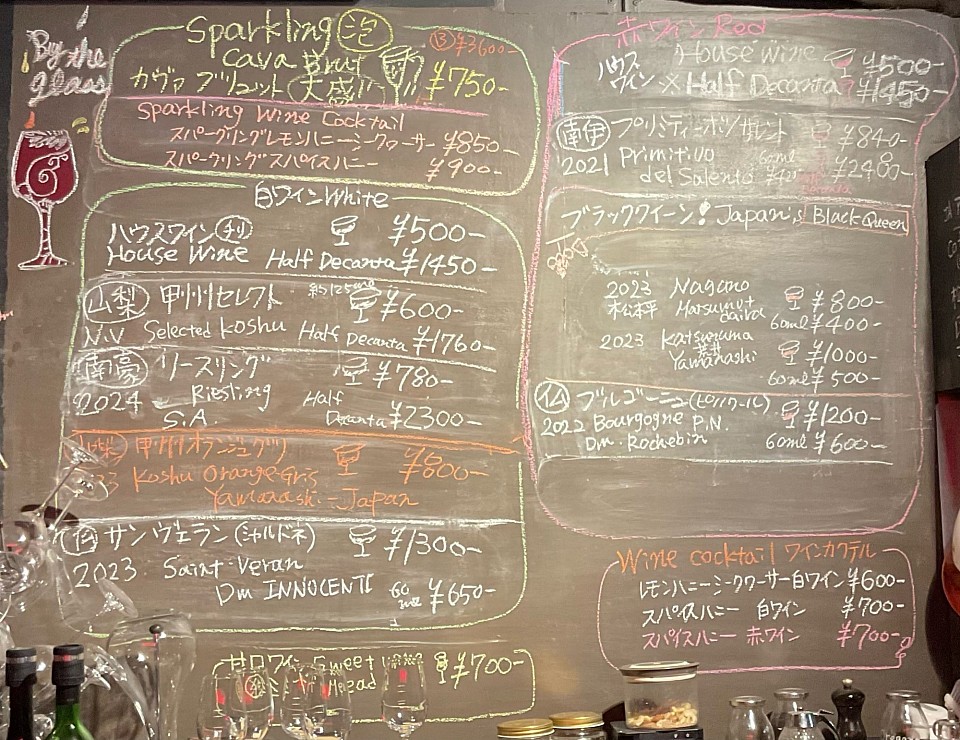 By the
glass
Sparkling 泡
Cava Brut
カヴァ ブリュット (大盛!!) ¥750-
¥3600-
Sparkling Wine Cocktail
スパークリングレモンハニーシークワーサー ¥850-
スパークリングスパイスハニー ¥900-
白ワイン White
ハウスワイン ¥500-
House Wine Half Decanta ¥1450-
山梨 甲州セレクト 約125ml ¥600-
N.V Selected Koshu Half Decanta ¥1760-
南豪 リースリング ¥780-
2024 Riesling Half
S.A. Decanta ¥2300-
甲州オランジュグリ ¥800-
Koshu Orange Gris
Yamanashi - Japan
仏 サンヴェラン (シャルドネ) ¥1300-
2023 Saint-Veran
Dm INNOCENTI 60ml ¥650-
甘口ワイン Sweet ¥700-
赤ワイン Red
ハウスワイン House Wine ¥500-
× Half Decanta ¥1450-
南伊 プリミティーボ ¥840-
2021 Primitivo 60ml
del Salento ¥420
ブラッククイーン! Japan's Black Queen
2023 Nagano ¥800-
60ml ¥400-
2023 Katsunuma
Yamanashi ¥1000-
60ml ¥500-
仏 ブルゴーニュ (ピノノワール) ¥1200-
2022 Bourgogne P.N.
Dm. Rochebin 60ml ¥600-
Wine cocktail ワインカクテル
レモンハニーシークワーサー白ワイン ¥600-
スパイスハニー 白ワイン ¥700-
スパイスハニー 赤ワイン ¥700-